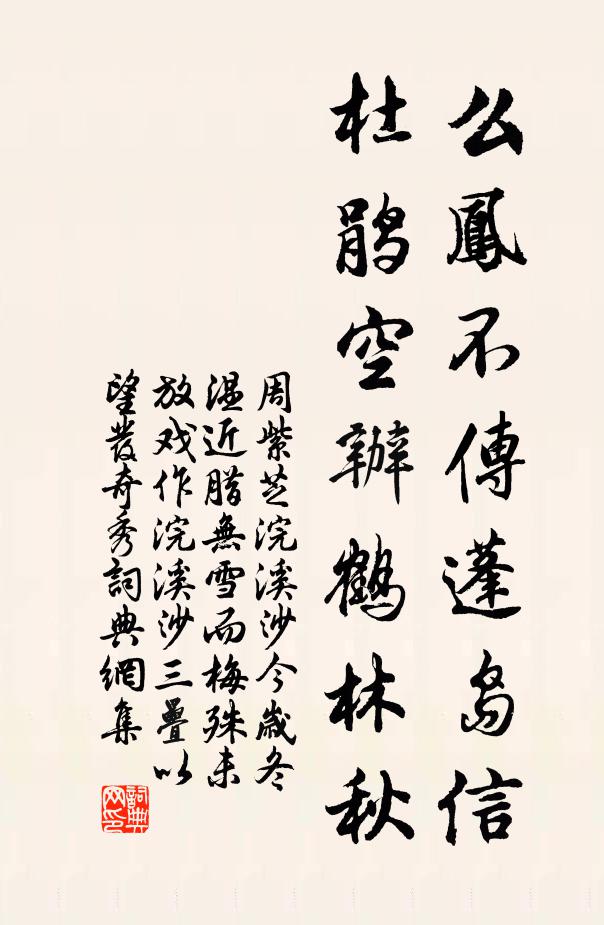 么鳳不傳蓬島信
杜鹃空辦鶴林秋
周紫芝浣溪沙今歲冬
温近腊無雪而梅殊未
放戏作浣溪沙三疊以
望發奇秀詞典網集
詞典网印